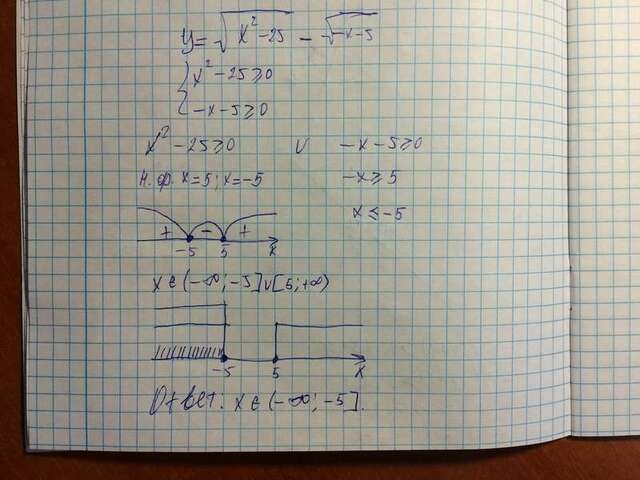 y = √x² - 25 - √-x-5
{ x² - 25 ≥ 0
-x - 5 ≥ 0
x² - 25 ≥ 0 И -x - 5 ≥ 0
н.ф. x = 5; x = -5 -x ≥ 5
x ≤ -5
+ - +
-5 5 x
x ∈ (-∞; -5] ∪ [5; +∞)
-5 5 x
Ответ: x ∈ (-∞; -5].